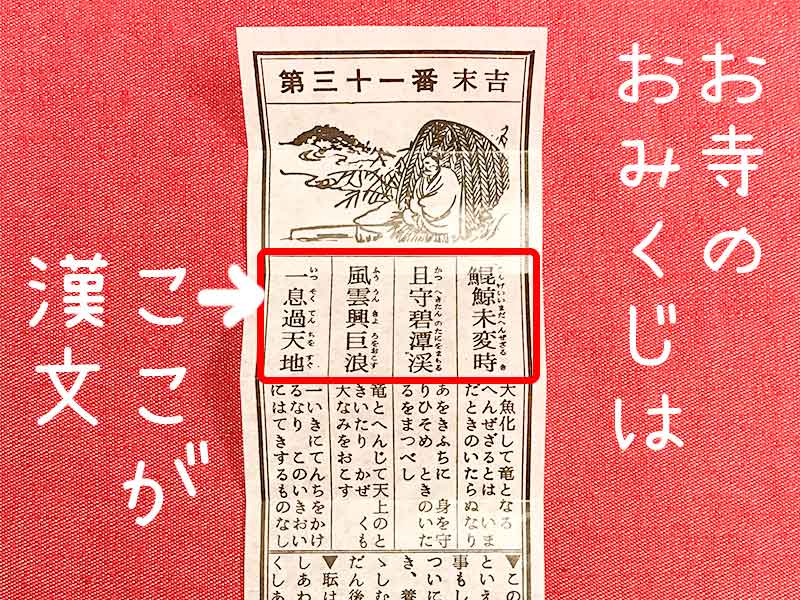 お寺の
おみくじは
ここが
漢文
第三十一番 末吉
鯤鯨未変時
且守碧潭渓
風雲興巨浪
一息過天地
大魚化して竜となる
へんぜざるとは いま
だときのいたらぬなり
あをきふちに 身を守
りひそめ ときのいた
るをまつべし
竜とへんじて天上のと
きいたり かぜ くも
大なみをおこす
一いきにてんちをかけ
るなり このいきおい
にはてきするものなし
▼この
といえ
事もし
ついに
き、養
ゝしむ
だん後
しあわ
くしあ